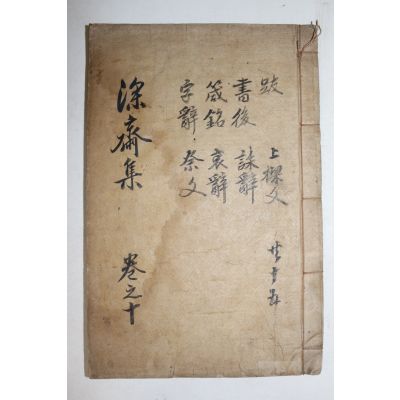 跋 上樑文
書後 誄辭
箴銘 哀辭
字辭 祭文
深齋集 卷之十
共十